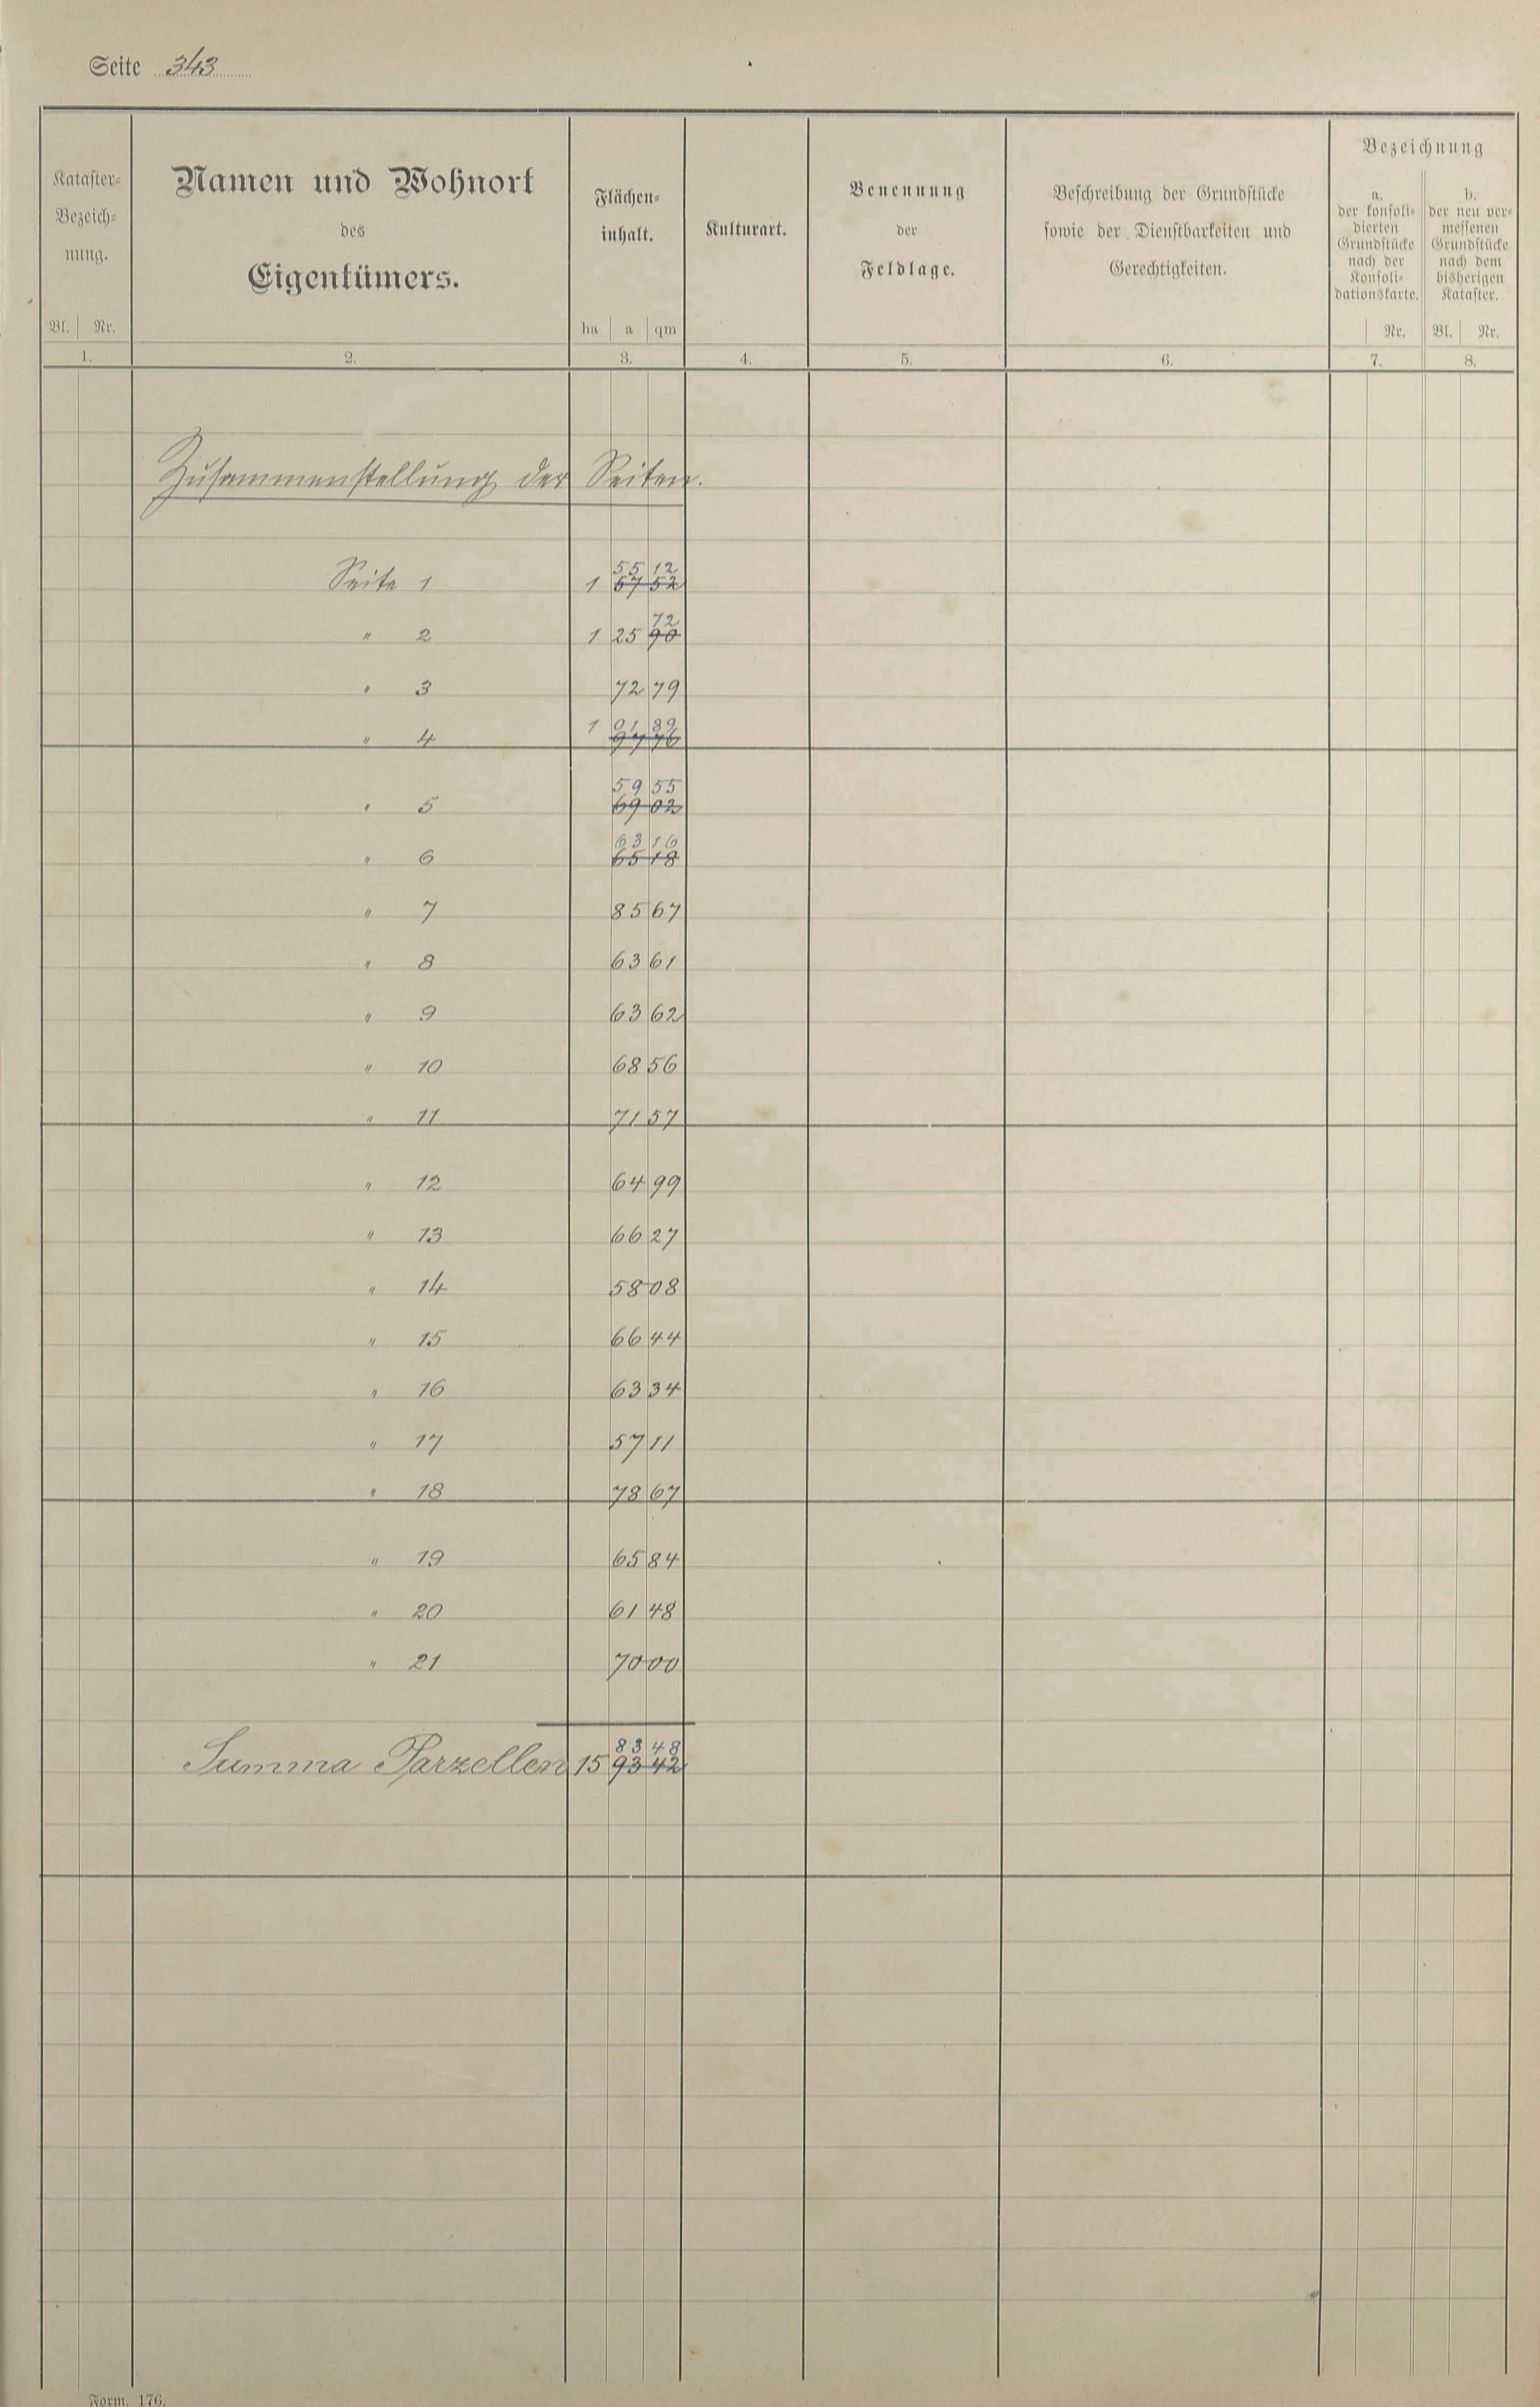 Seite 343
Kataster-
Bezeich-
nung.
Bl. Nr.
1.
Namen und Wohnort
des
Eigentümers.
2.
Flächen-
inhalt.
ha a qm
3.
Kulturart.
4.
Benennung
der
Feldlage.
5.
Beschreibung der Grundstücke
sowie der Dienstbarkeiten und
Gerechtigkeiten.
6.
Bezeichnung
a.
der konsoli-
dierten
Grundstücke
nach der
Konsoli-
dationskarte.
Nr.
7.
b.
der neu ver-
messenen
Grundstücke
nach dem
bisherigen
Kataster.
Bl. Nr.
8.
Zusammenstellung der Seiten.
55 12
Seite 1 1 67 52
72
" 2 1 25 90
" 3 72 79
1 01 89
" 4 97 76
59 55
" 5 69 02
63 16
" 6 65 18
" 7 85 67
" 8 63 61
" 9 63 62
" 10 68 56
" 11 71 57
" 12 64 99
" 13 66 27
" 14 58 08
" 15 66 44
" 16 63 34
" 17 57 11
" 18 78 67
" 19 65 84
" 20 61 48
" 21 70 00
83 48
Summa Parzellen 15 93 42
Form. 176.